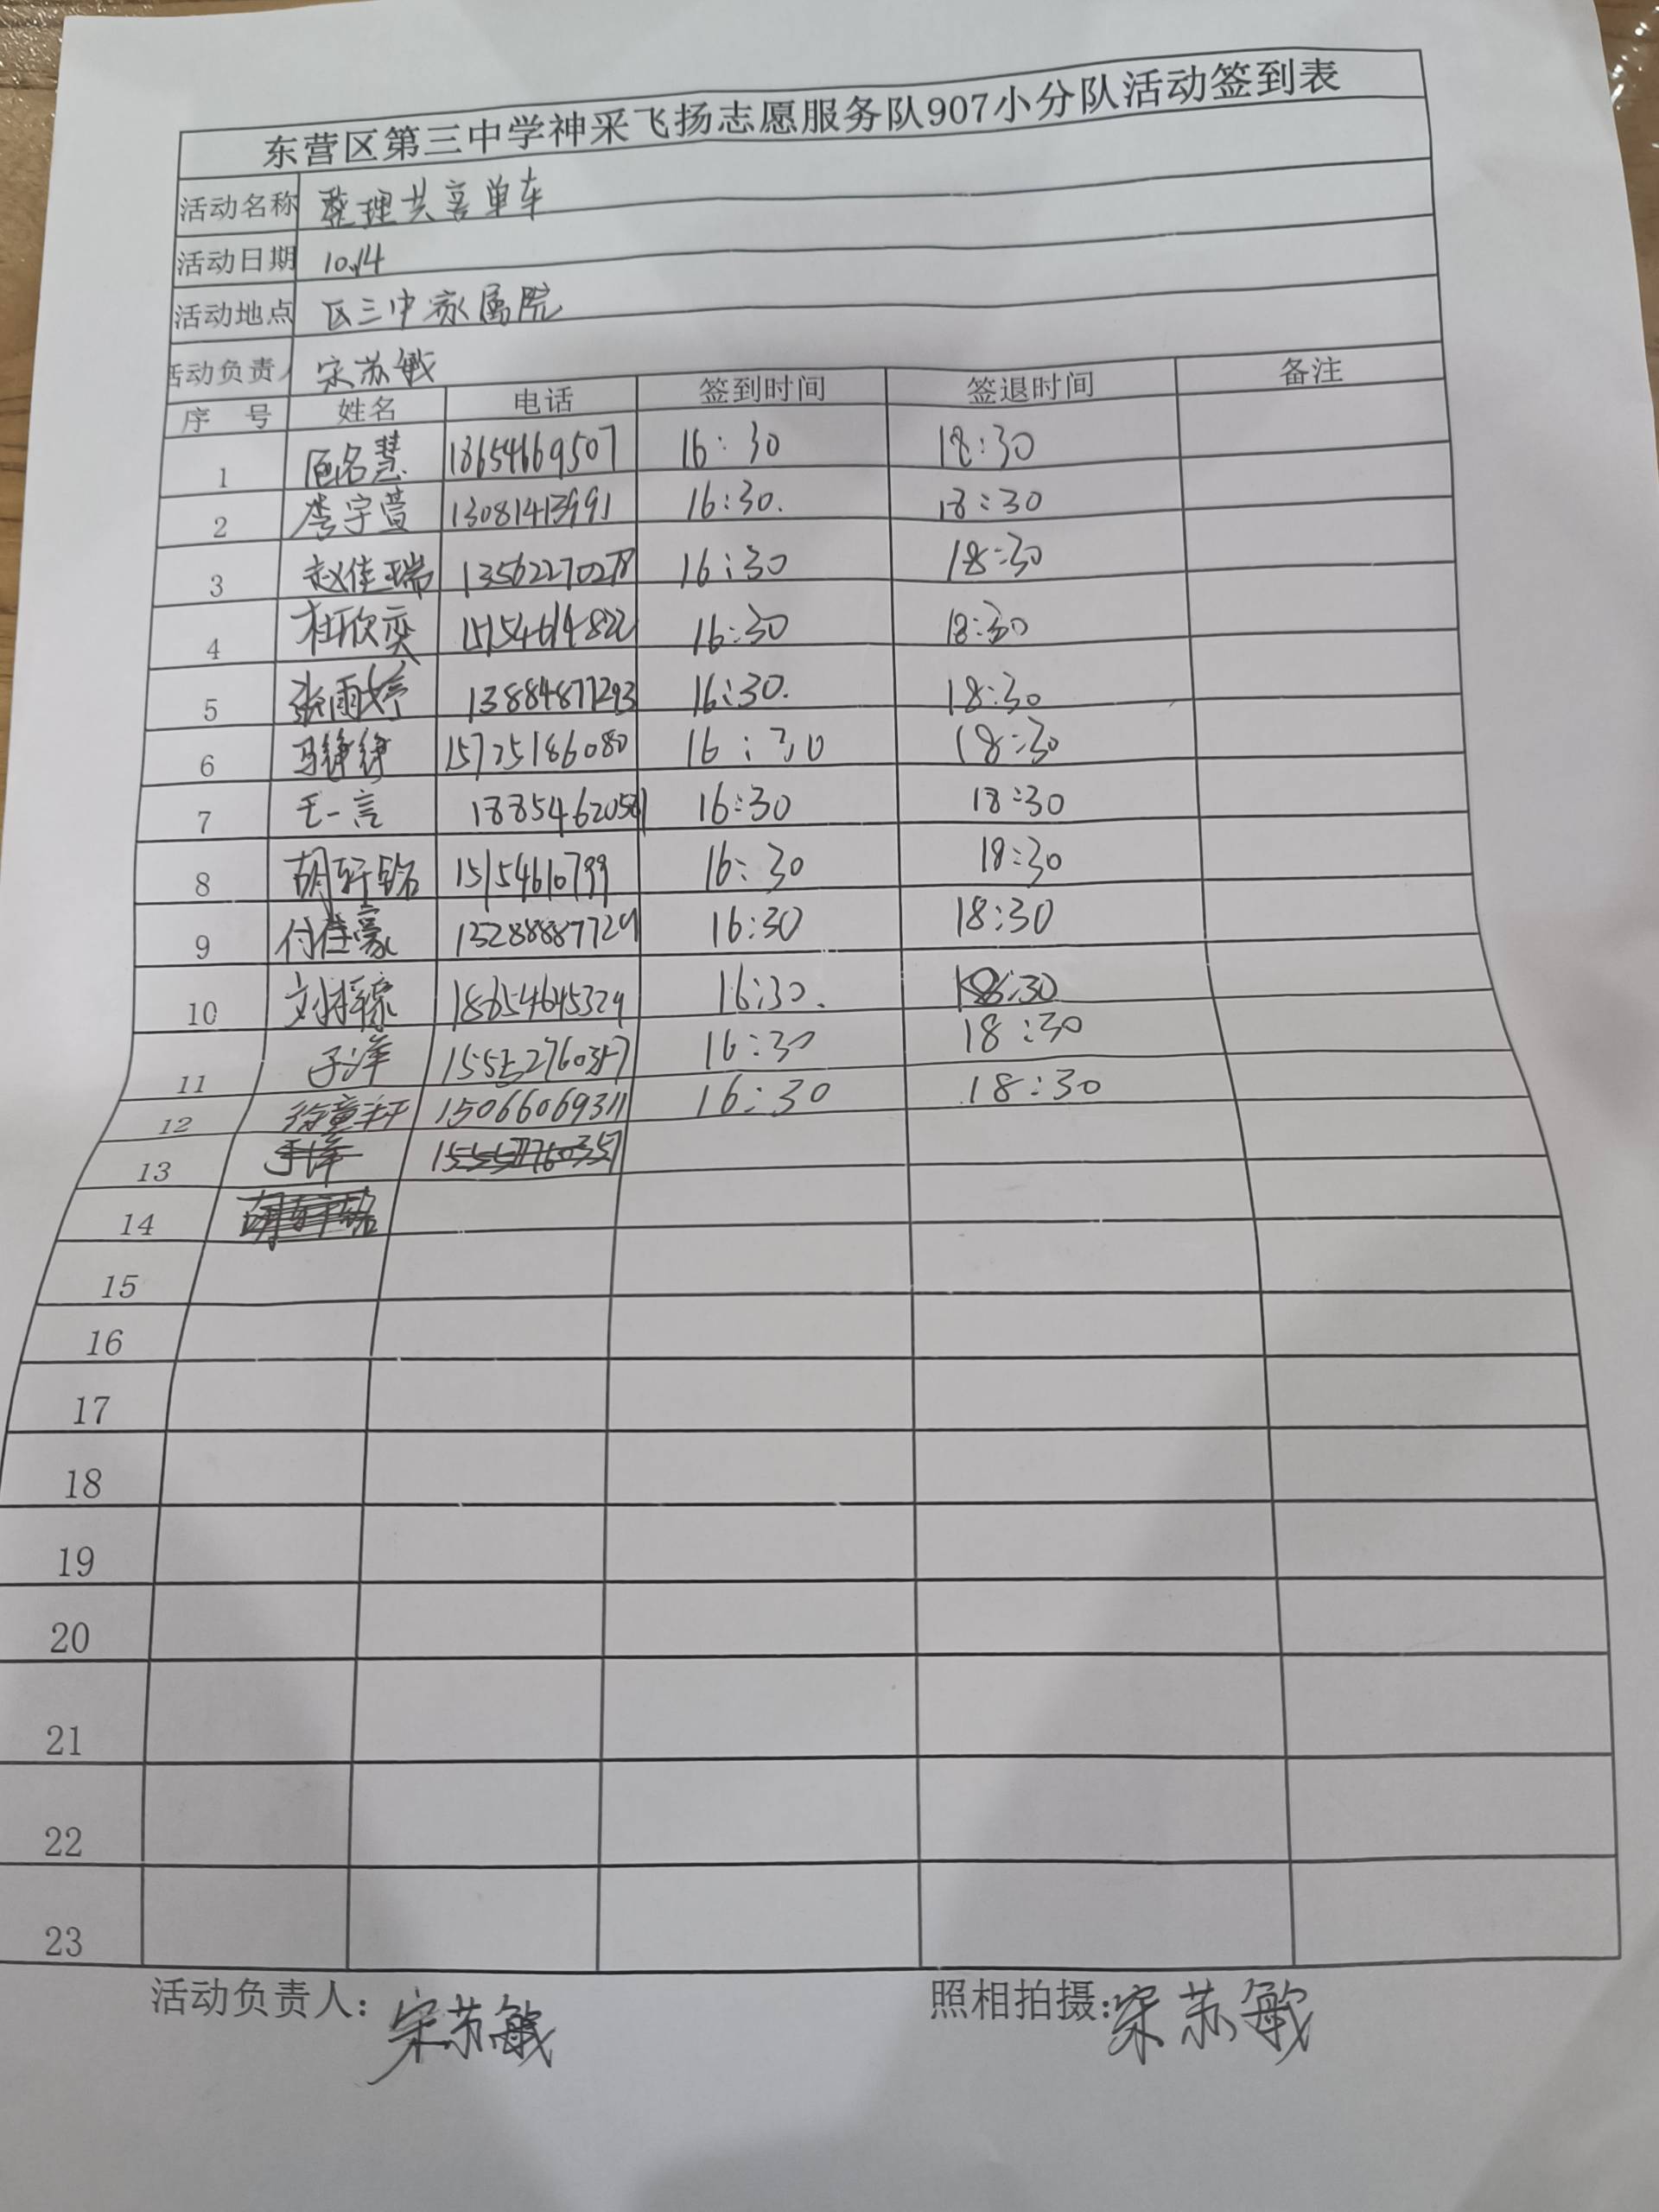 东营区第三中学神采飞扬志愿服务队907小分队活动签到表
活动名称 整理共享单车
活动日期 10.14
活动地点 区三中家属院
活动负责人 宋苏敏
序 号 姓名 电话 签到时间 签退时间 备注
1 名慧 18654669507 16:30 18:30
2 李宇萱 13081413991 16:30. 18:30
3 赵佳瑞 13562270278 16:30 18:30
4 杜欣奕 15154614822 16:30 18:30
5 张雨婷 13884877293 16:30. 18:30
6 马铮铮 15725186080 16:30 18:30
7 毛一言 16:30 18:30
8 胡轩铭 16:30 18:30
9 付佳豪 13288887729 16:30 18:30
10 刘梓豪 18654645329 16:30. 18:30
11 子洋 15552760357 16:30 18:30
12 徐童轩 15066069311 16:30 18:30
13
14
15
16
17
18
19
20
21
22
23
活动负责人：宋苏敏 照相拍摄：宋苏敏